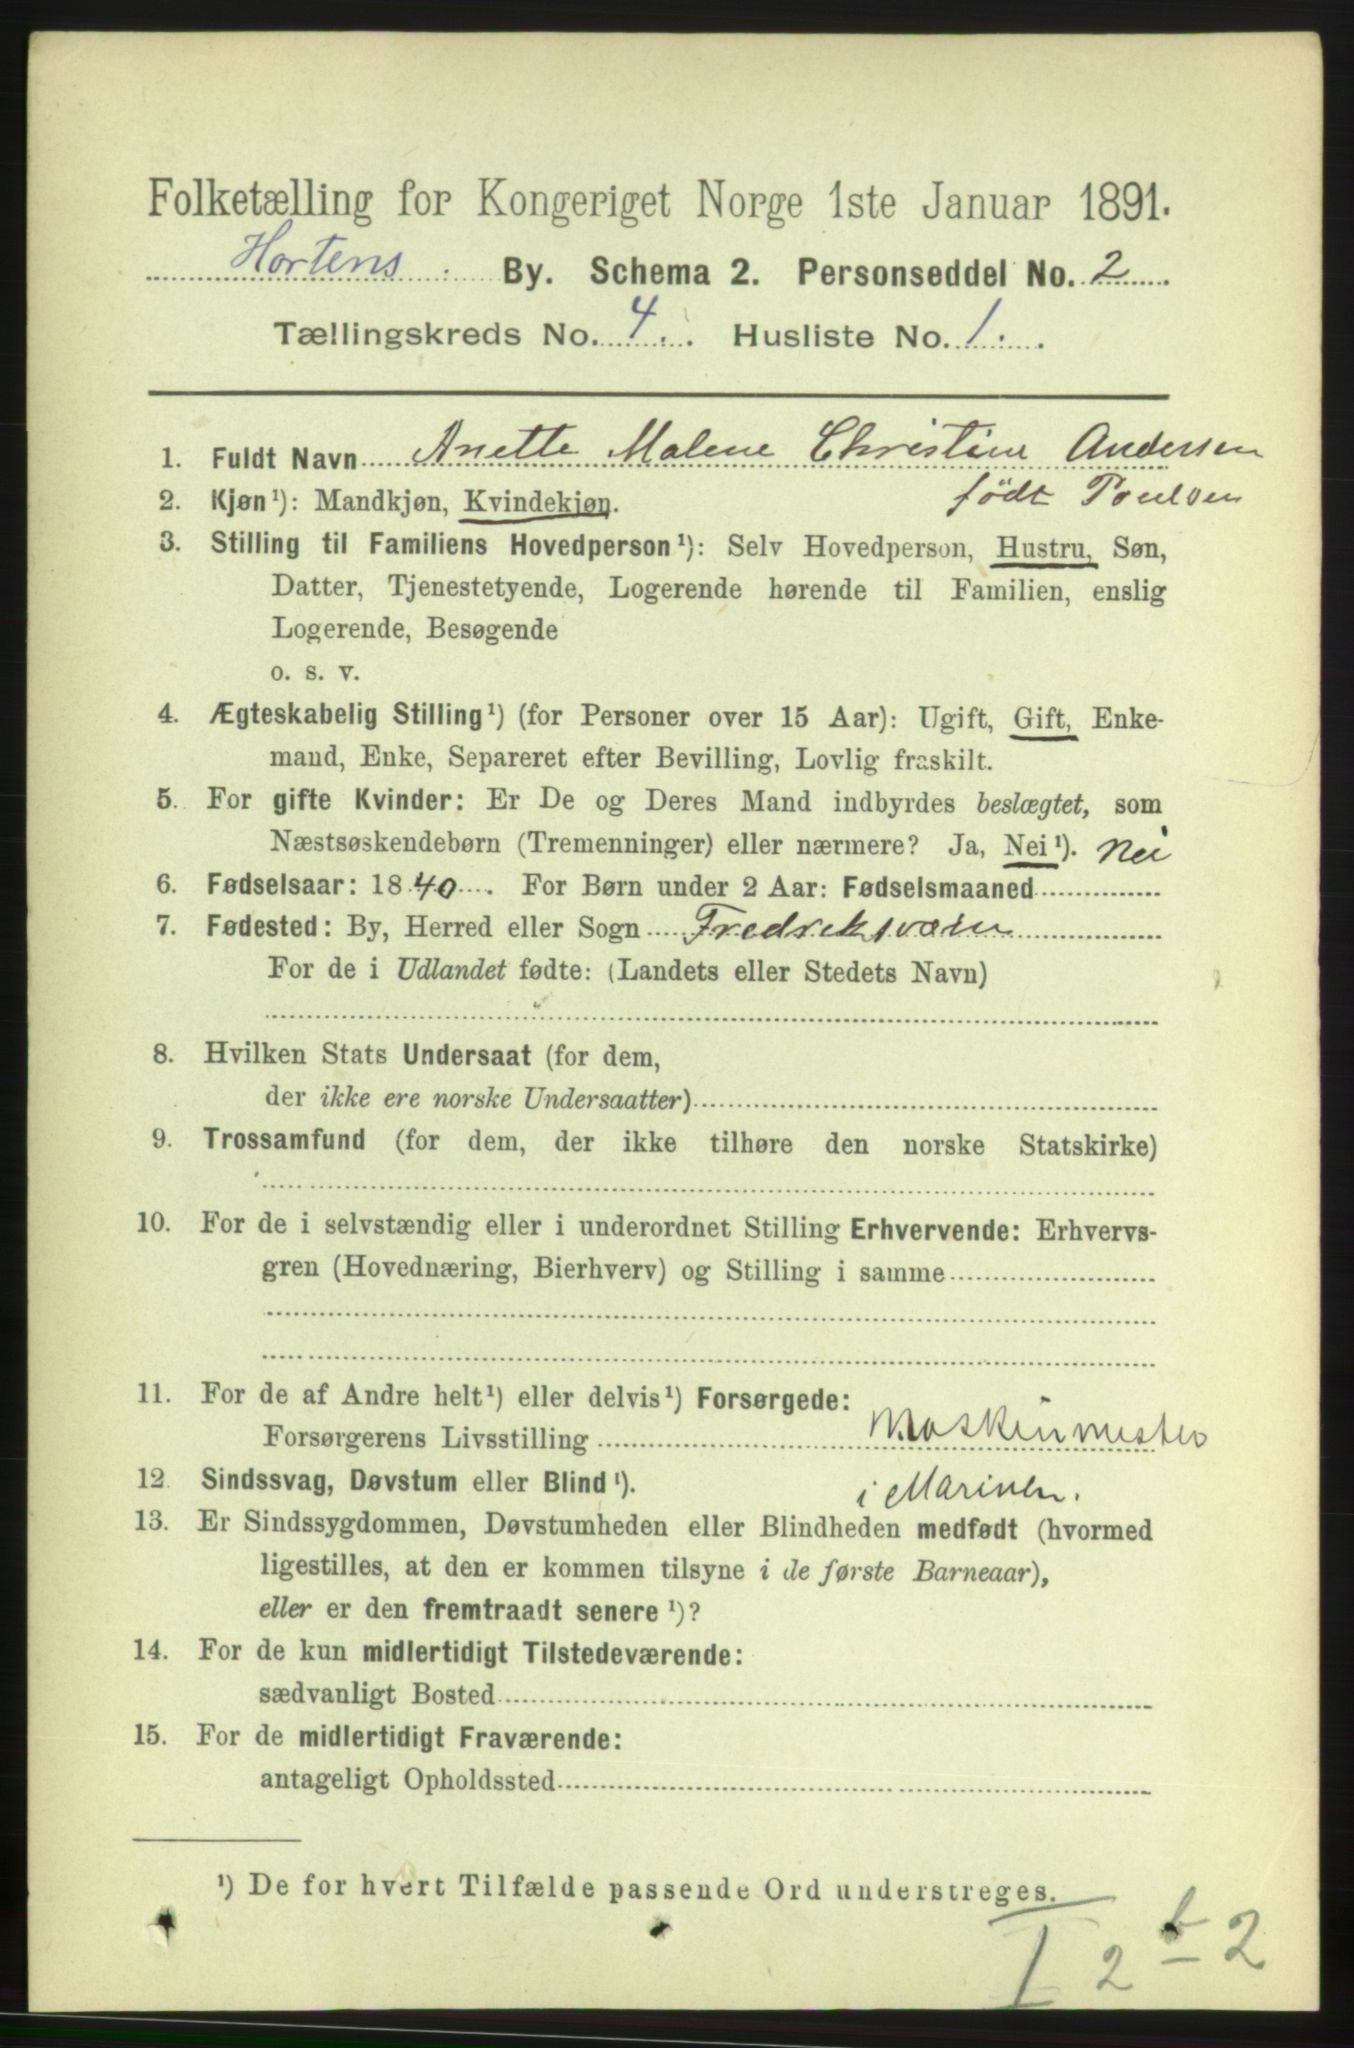 Folketælling for Kongeriget Norge 1ste Januar 1891.
Hortens By. Schema 2. Personseddel No. 2
Tællingskreds No. 4. Husliste No. 1.
1. Fuldt Navn Anette Malene Christine Andersen
født Poulsen
2. Kjøn¹): Mandkjøn, Kvindekjøn.
3. Stilling til Familiens Hovedperson¹): Selv Hovedperson, Hustru, Søn,
Datter, Tjenestetyende, Logerende hørende til Familien, enslig
Logerende, Besøgende
o. s. v.
4. Ægteskabelig Stilling¹) (for Personer over 15 Aar): Ugift, Gift, Enke-
mand, Enke, Separeret efter Bevilling, Lovlig fraskilt.
5. For gifte Kvinder: Er De og Deres Mand indbyrdes beslægtet, som
Næstsøskendebørn (Tremenninger) eller nærmere? Ja, Nei¹). Nei
6. Fødselsaar: 1840. For Børn under 2 Aar: Fødselsmaaned
7. Fødested: By, Herred eller Sogn Fredriksværn
For de i Udlandet fødte: (Landets eller Stedets Navn)
8. Hvilken Stats Undersaat (for dem,
der ikke ere norske Undersaatter)
9. Trossamfund (for dem, der ikke tilhøre den norske Statskirke)
10. For de i selvstændig eller i underordnet Stilling Erhvervende: Erhvervs-
gren (Hovednæring, Bierhverv) og Stilling i samme
11. For de af Andre helt¹) eller delvis¹) Forsørgede:
Forsørgerens Livsstilling Maskinmester
i Marinen.
12. Sindssvag, Døvstum eller Blind¹).
13. Er Sindssygdommen, Døvstumheden eller Blindheden medfødt (hvormed
ligestilles, at den er kommen tilsyne i de første Barneaar),
eller er den fremtraadt senere¹)?
14. For de kun midlertidigt Tilstedeværende:
sædvanligt Bosted
15. For de midlertidigt Fraværende:
antageligt Opholdssted
¹) De for hvert Tilfælde passende Ord understreges.
I 2 b 2